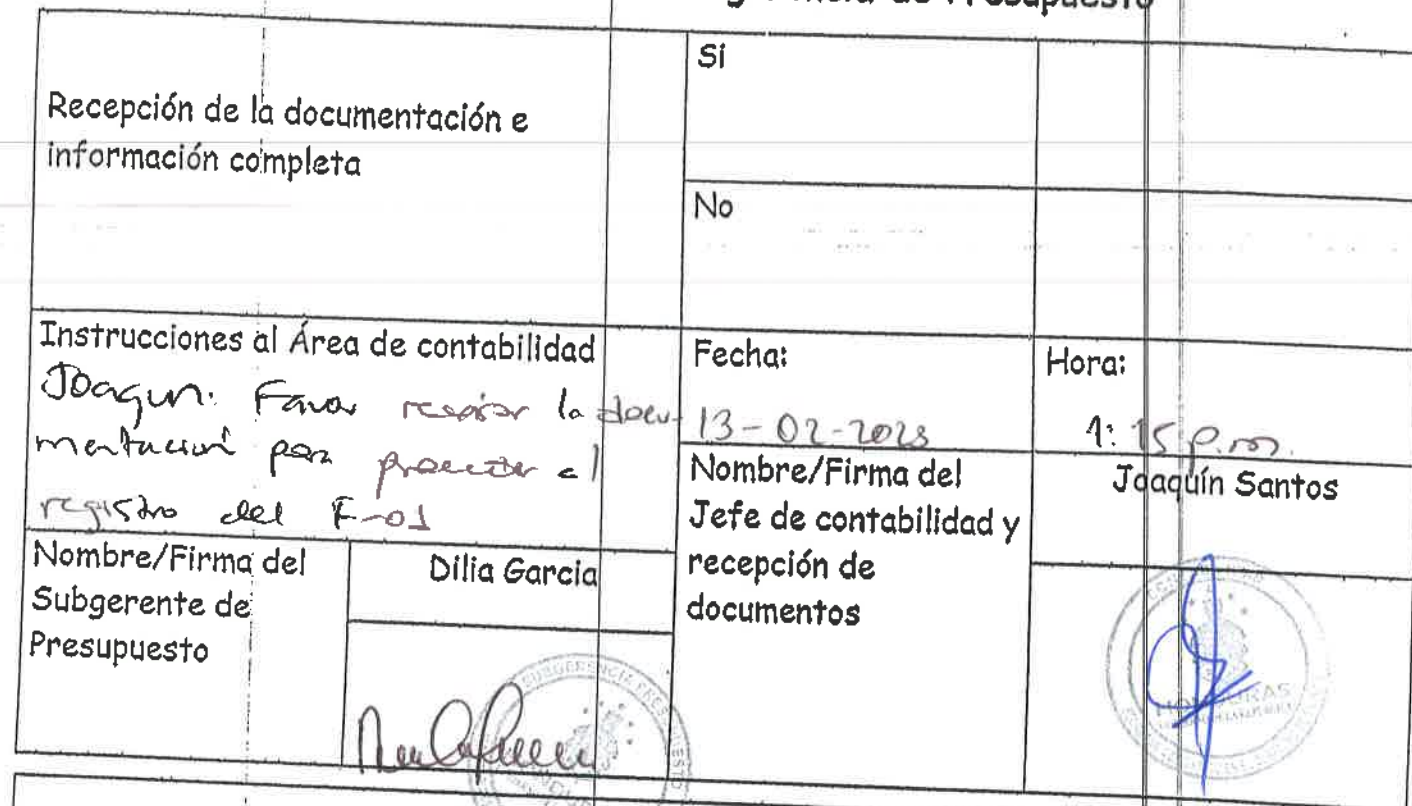 de Presupuesto
Recepción de la documentación e
información completa
Sí
No
Instrucciones al Área de contabilidad
Joaquin: Favor revisar la docu-
mentación para proceder al
registro del F-01
Fecha:
13-02-2023
Hora:
1:15 p.m.
Nombre/Firma del
Subgerente de
Presupuesto
Dilia Garcia
Nombre/Firma del
Jefe de contabilidad y
recepción de
documentos
Joaquín Santos
SUBGERENCIA
HONDURAS